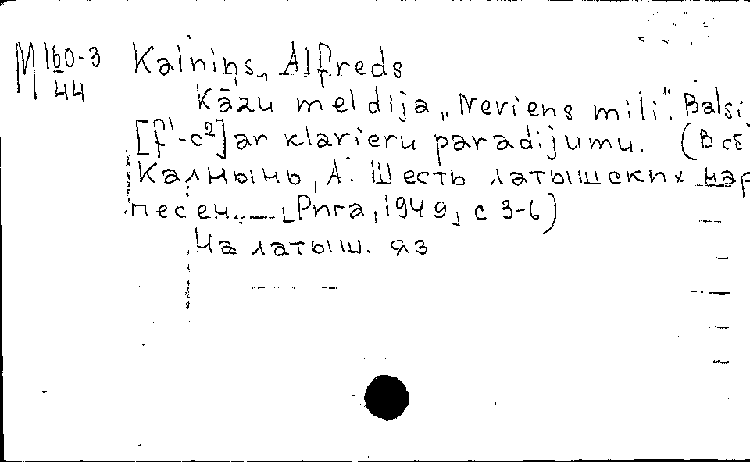 M 160-3 Kalniņs, Alfreds
44
Kāzu meldija „Neviens mili". Balsi
[f¹-c²] ar klavieru paradijumu. (В сб
Калнынь, А. Шесть латышских нар
песен. Рига, 1949, с 3-6)
На латыш. яз